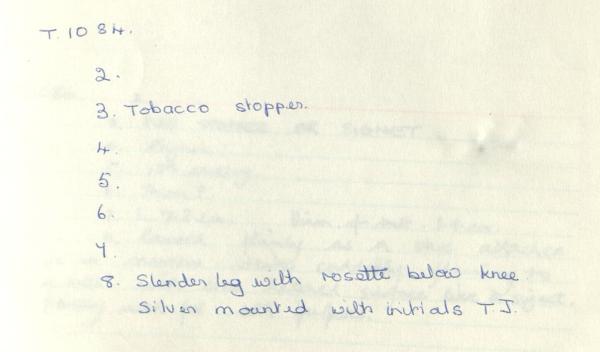 T.1084.
2.
3. Tobacco stopper.
4.
5.
6.
7.
8. Slender leg with rosette below knee.
Silver mounted with initials T.J.